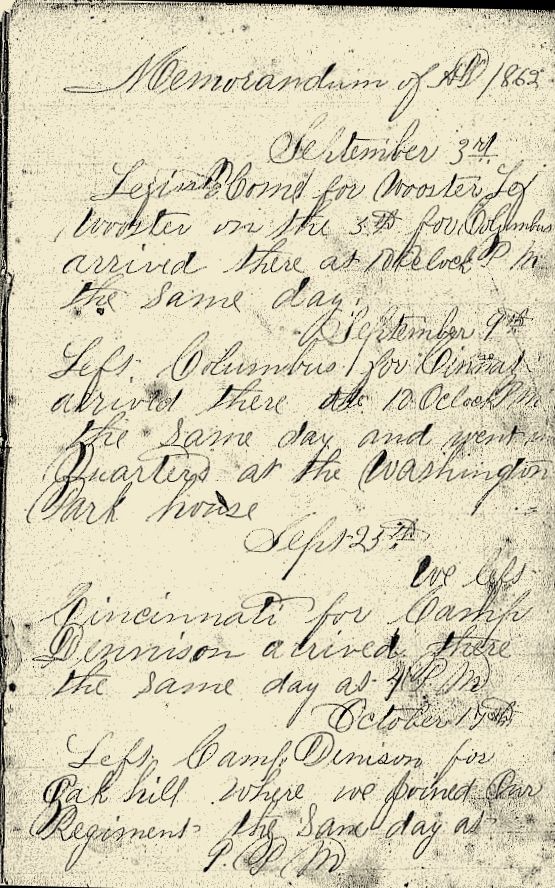 Memorandum of AD / 1862
September 3rd
Left Home for Wooster Left
Wooster on the 5th for Columbus
arrived there at Oclock P M
the same day.
September 9th
Left Columbus for Cinnat
arrived there at 12 Oclock P M
the same day and went in
Quarters at the Washington
Park house
Sept 25th
We left
Cincinnati for Camp
Dennison arrived there
the same day at 4 P M
October 17th
Left Camp Dinison for
Oak hill where we joined Our
Regiment the same day at
9. P M